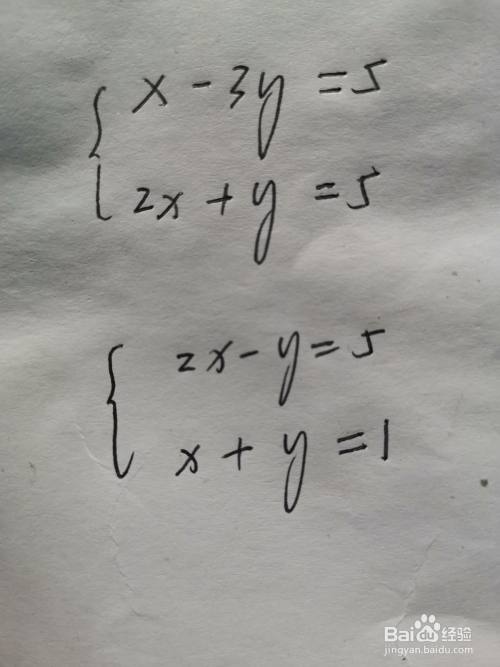 x - 3y = 5
2x + y = 5
2x - y = 5
x + y = 1
Baidu 经验
jingyan.baidu.com